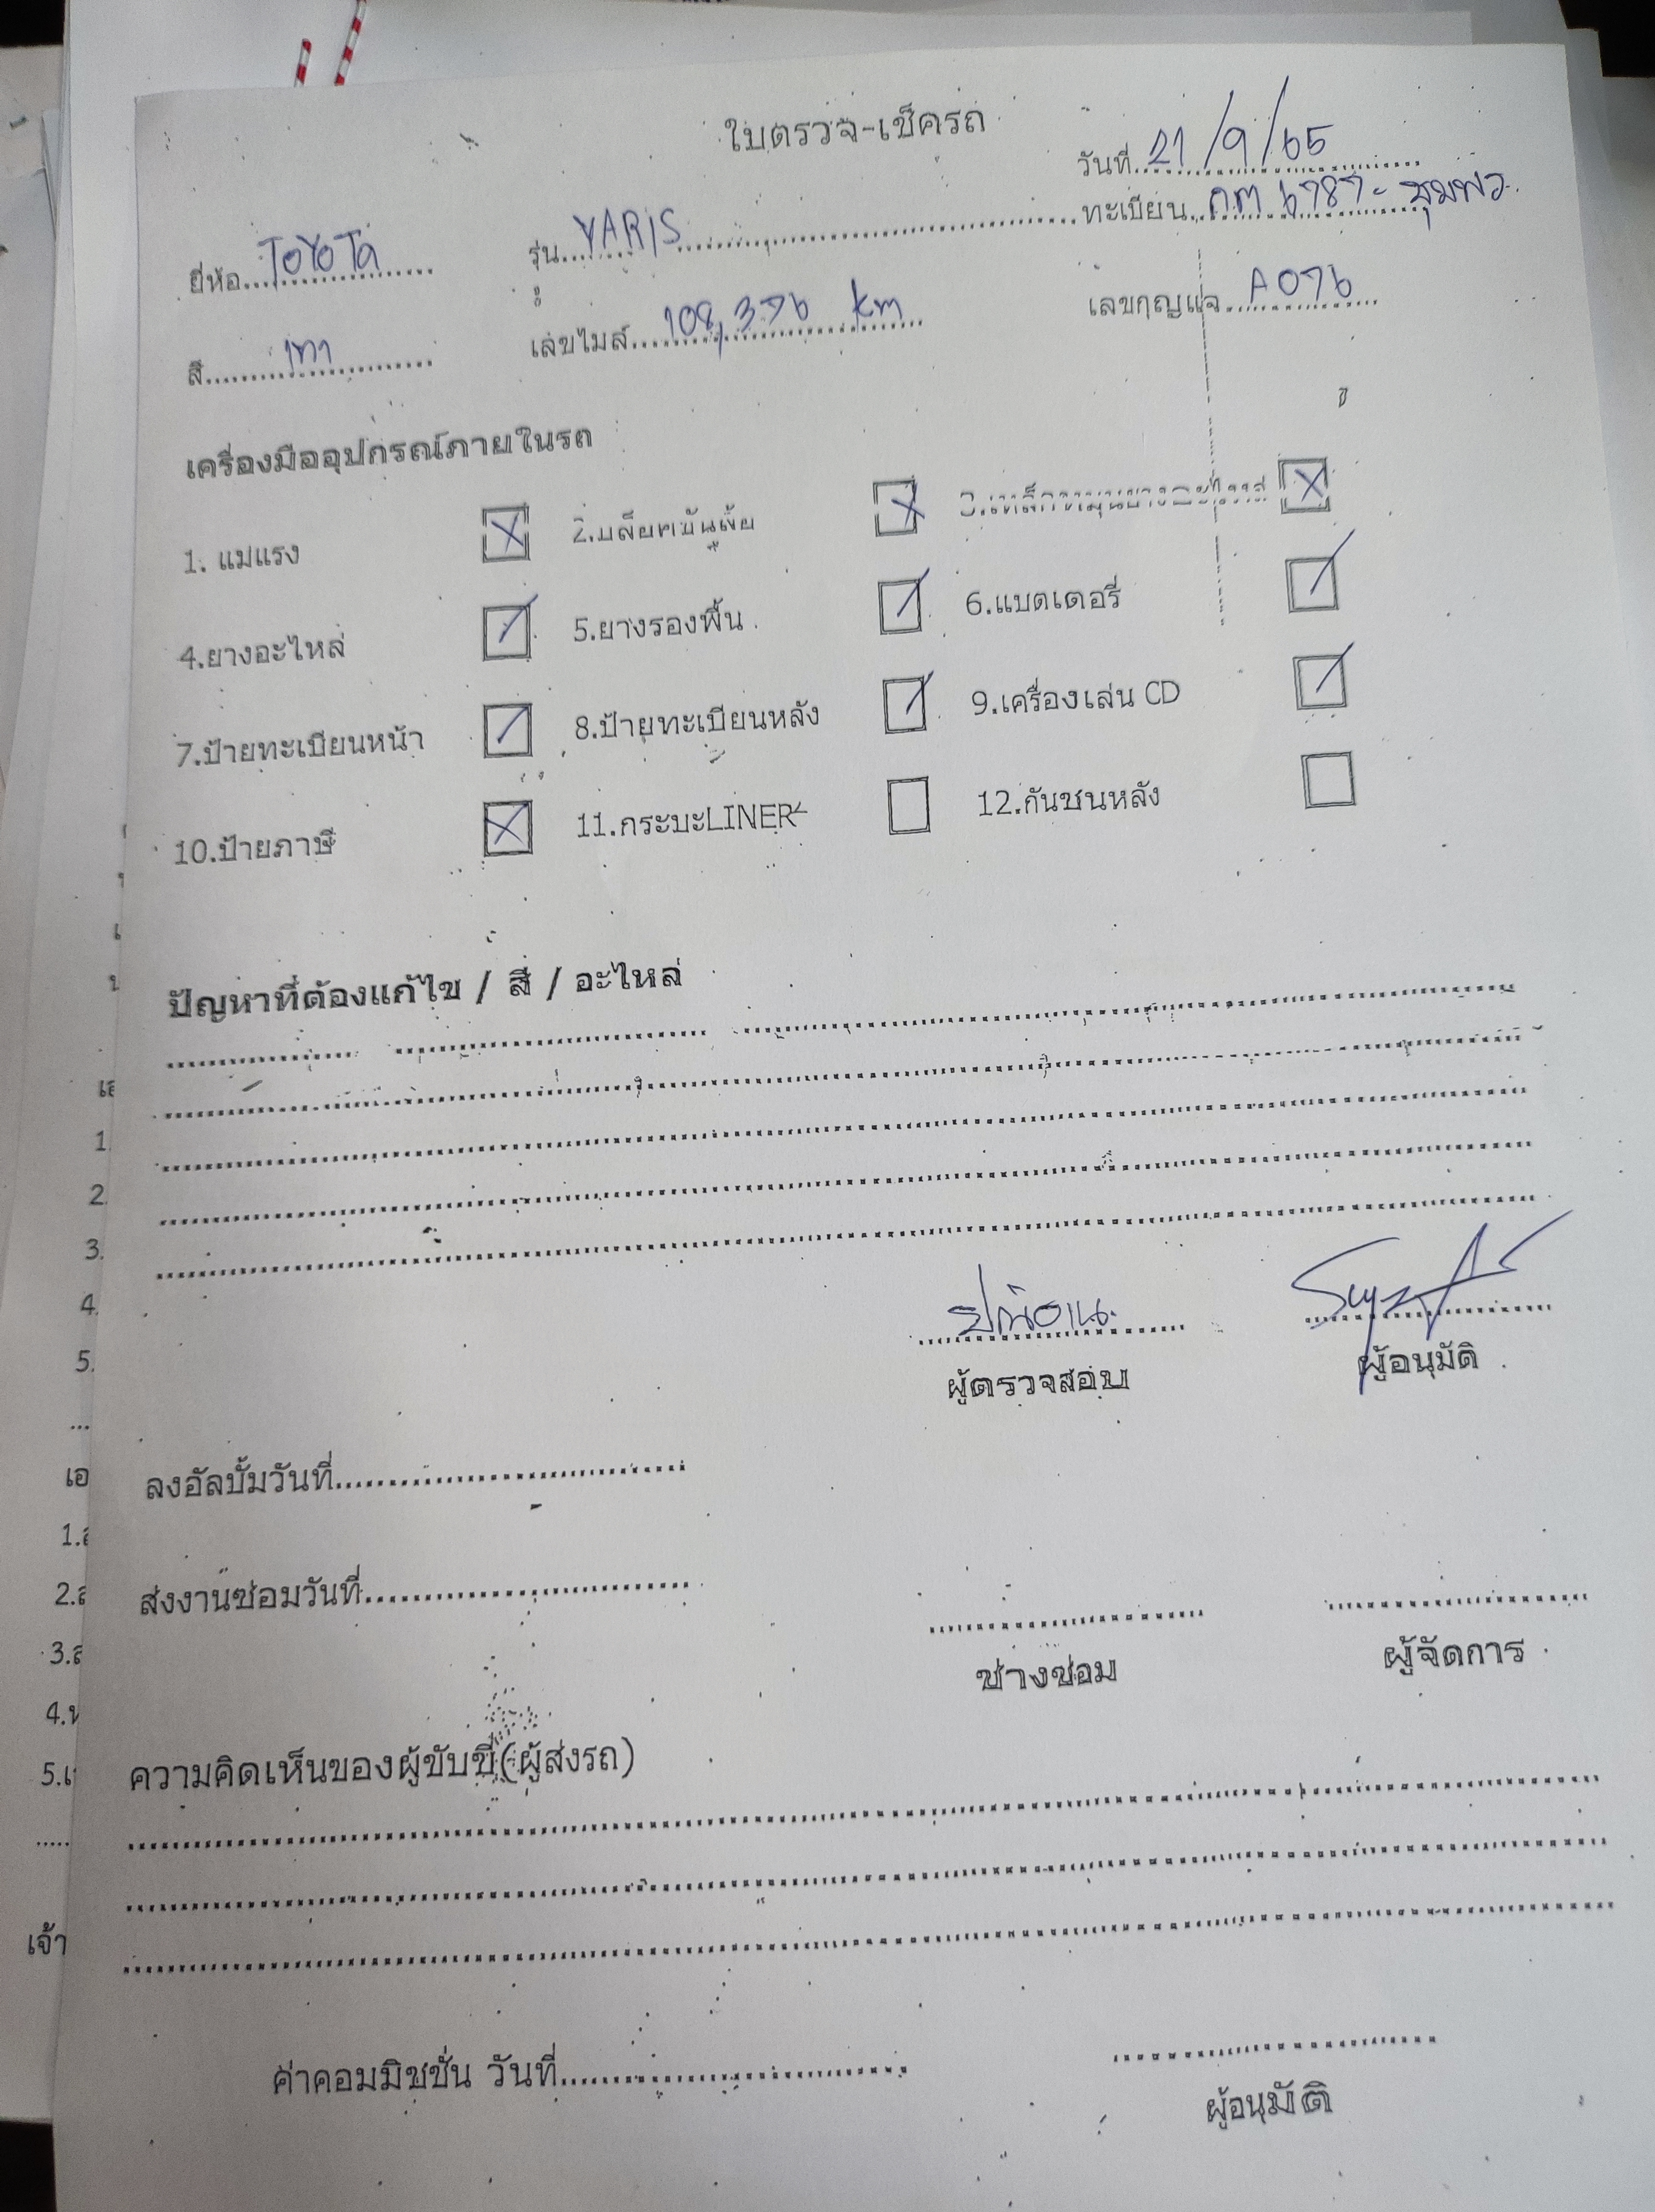 ใบตรวจ-เช็ครถ
วันที่ 21/9/65
ยี่ห้อ TOYOTA รุ่น YARIS ทะเบียน กm 6787- ชุมพร
สี เทา เลขไมล์ 108,376 km เลขกุญแจ A076
เครื่องมืออุปกรณ์ภายในรถ
1. แม่แรง 2.บล็อคขัน
4.ยางอะไหล่ 5.ยางรองพื้น 6.แบตเตอรี่
7.ป้ายทะเบียนหน้า 8.ป้ายทะเบียนหลัง 9.เครื่องเล่น CD
10.ป้ายภาษี 11.กระบะLINER 12.กันชนหลัง
ปัญหาที่ต้องแก้ไข / สี / อะไหล่
ผู้ตรวจสอบ ผู้อนุมัติ
ลงอัลบั้มวันที่
ส่งงานซ่อมวันที่
ช่างซ่อม ผู้จัดการ
ความคิดเห็นของผู้ขับขี่(ผู้ส่งรถ)
ค่าคอมมิชชั่น วันที่
ผู้อนุมัติ
1.
2.
3.
4.
5.
เอ
1.
2.
3.
4.
5.
เจ้า